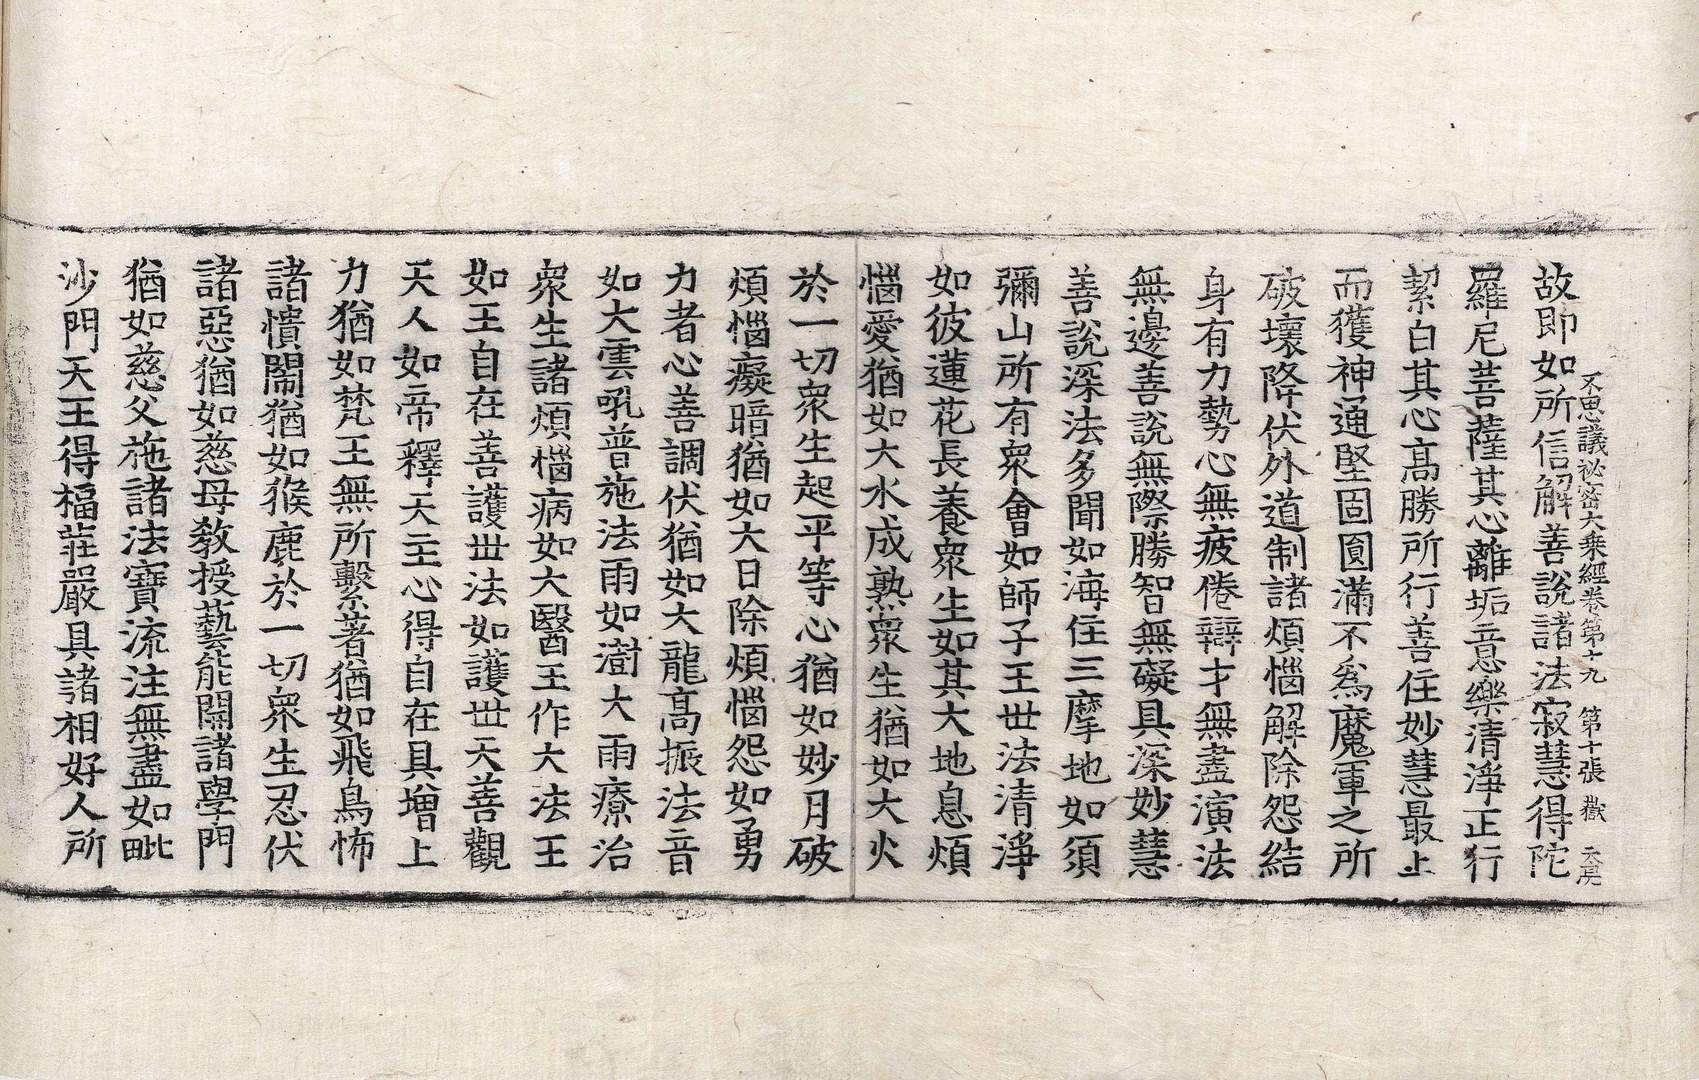 不思議祕密大乗經卷第十九 第十張 嶽
故即如所信解善說諸法寂慧得陀
羅尼菩薩其心離垢意樂清淨正行
絜白其心高勝所行善住妙慧最上
而獲神通堅固圓滿不爲魔軍之所
破壞降伏外道制諸煩惱解除怨結
身有力勢心無疲倦辯才無盡演法
無邊善說無際勝智無礙具深妙慧
善說深法多聞如海住三摩地如須
彌山所有衆會如師子王世法清淨
如彼蓮花長養衆生如其大地息煩
惱愛猶如大水成熟衆生猶如大火
於一切衆生起平等心猶如妙月破
煩惱癡暗猶如大日除煩惱怨如勇
力者心善調伏猶如大龍高振法音
如大雲吼普施法雨如澍大雨療治
衆生諸煩惱病如大醫王作大法王
如王自在善護世法如護世天善觀
天人如帝釋天主心得自在具增上
力猶如梵王無所繫著猶如飛鳥怖
諸憒閙猶如猴鹿於一切衆生忍伏
諸惡猶如慈母教授藝能開諸學門
猶如慈父施諸法寶流注無盡如毗
沙門天王得福莊嚴具諸相好人所